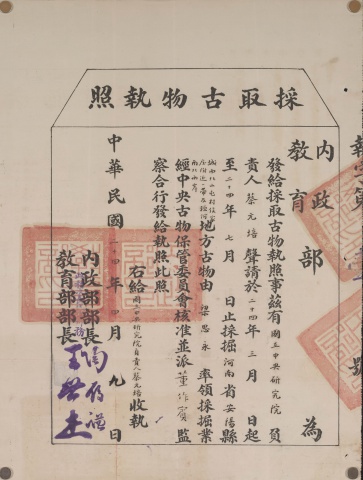 採取古物執照
內政
教育
部 為
發給採取古物執照事茲有國立中央研究院負
責人蔡元培聲請於二十四年三月 日起
至二十四年七月 日止採掘河南省安陽縣
地方古物由梁思永率領採掘業
經中央古物保管委員會核准並派董作賓監
察合行發給執照此照
右給國立中央研究院負責人蔡元培收執
內政部部長
教育部部長王世杰
中華民國二十四年四月九日
號